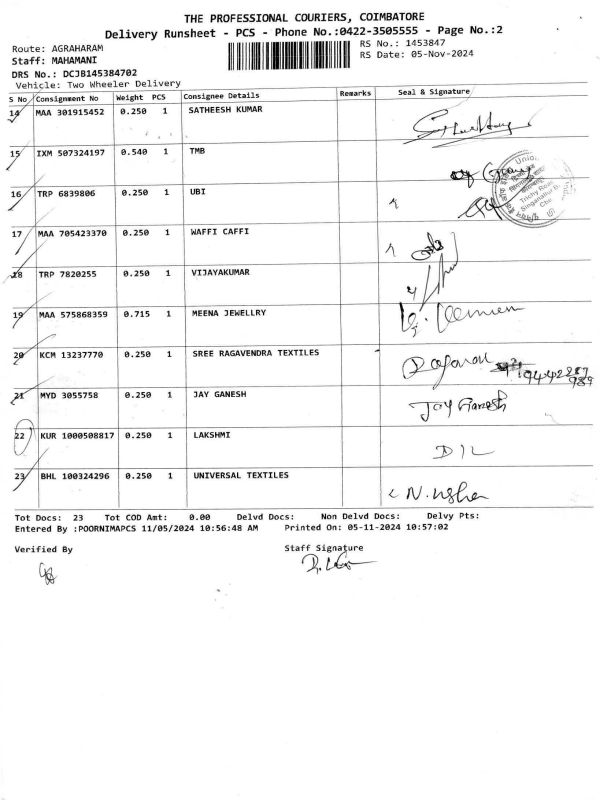 THE PROFESSIONAL COURIERS, COIMBATORE
Delivery Runsheet - PCS - Phone No.:0422-3505555 - Page No.:2
Route: AGRAHARAM
RS No.: 1453847
Staff: MAHAMANI
RS Date: 05-Nov-2024
DRS No.: DCJB145384702
Vehicle: Two Wheeler Delivery
S No Consignment No Weight PCS Consignee Details Remarks Seal & Signature
14 MAA 301915452 0.250 1 SATHEESH KUMAR
15 IXM 507324197 0.540 1 TMB
Union
Trichy Road
Singanallur
16 TRP 6839806 0.250 1 UBI
17 MAA 705423370 0.250 1 WAFFI CAFFI
18 TRP 7820255 0.250 1 VIJAYAKUMAR
19 MAA 575868359 0.715 1 MEENA JEWELLRY
20 KCM 13237770 0.250 1 SREE RAGAVENDRA TEXTILES
21 MYD 3055758 0.250 1 JAY GANESH Jay Ganesh
22 KUR 1000508817 0.250 1 LAKSHMI D I L
23 BHL 100324296 0.250 1 UNIVERSAL TEXTILES N. Usha
Tot Docs: 23 Tot COD Amt: 0.00 Delvd Docs: Non Delvd Docs: Delvy Pts:
Entered By :POORNIMAPCS 11/05/2024 10:56:48 AM Printed On: 05-11-2024 10:57:02
Verified By Staff Signature